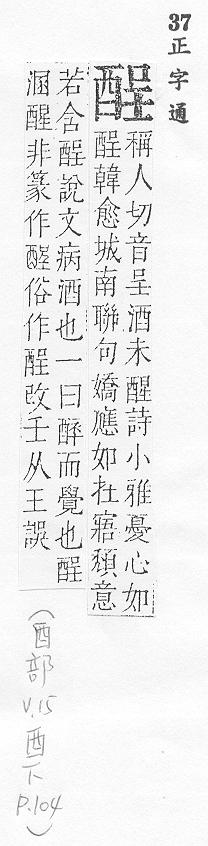 37正字通
酲
稱人切音呈酒未醒詩小雅憂心如
酲韓愈城南聯句嬌應如在寤頹意
若含酲說文病酒也一曰醉而覺也酲
溷醒非篆作俗作酲改壬从王誤
(酉部
V.15
酉下
P.104)